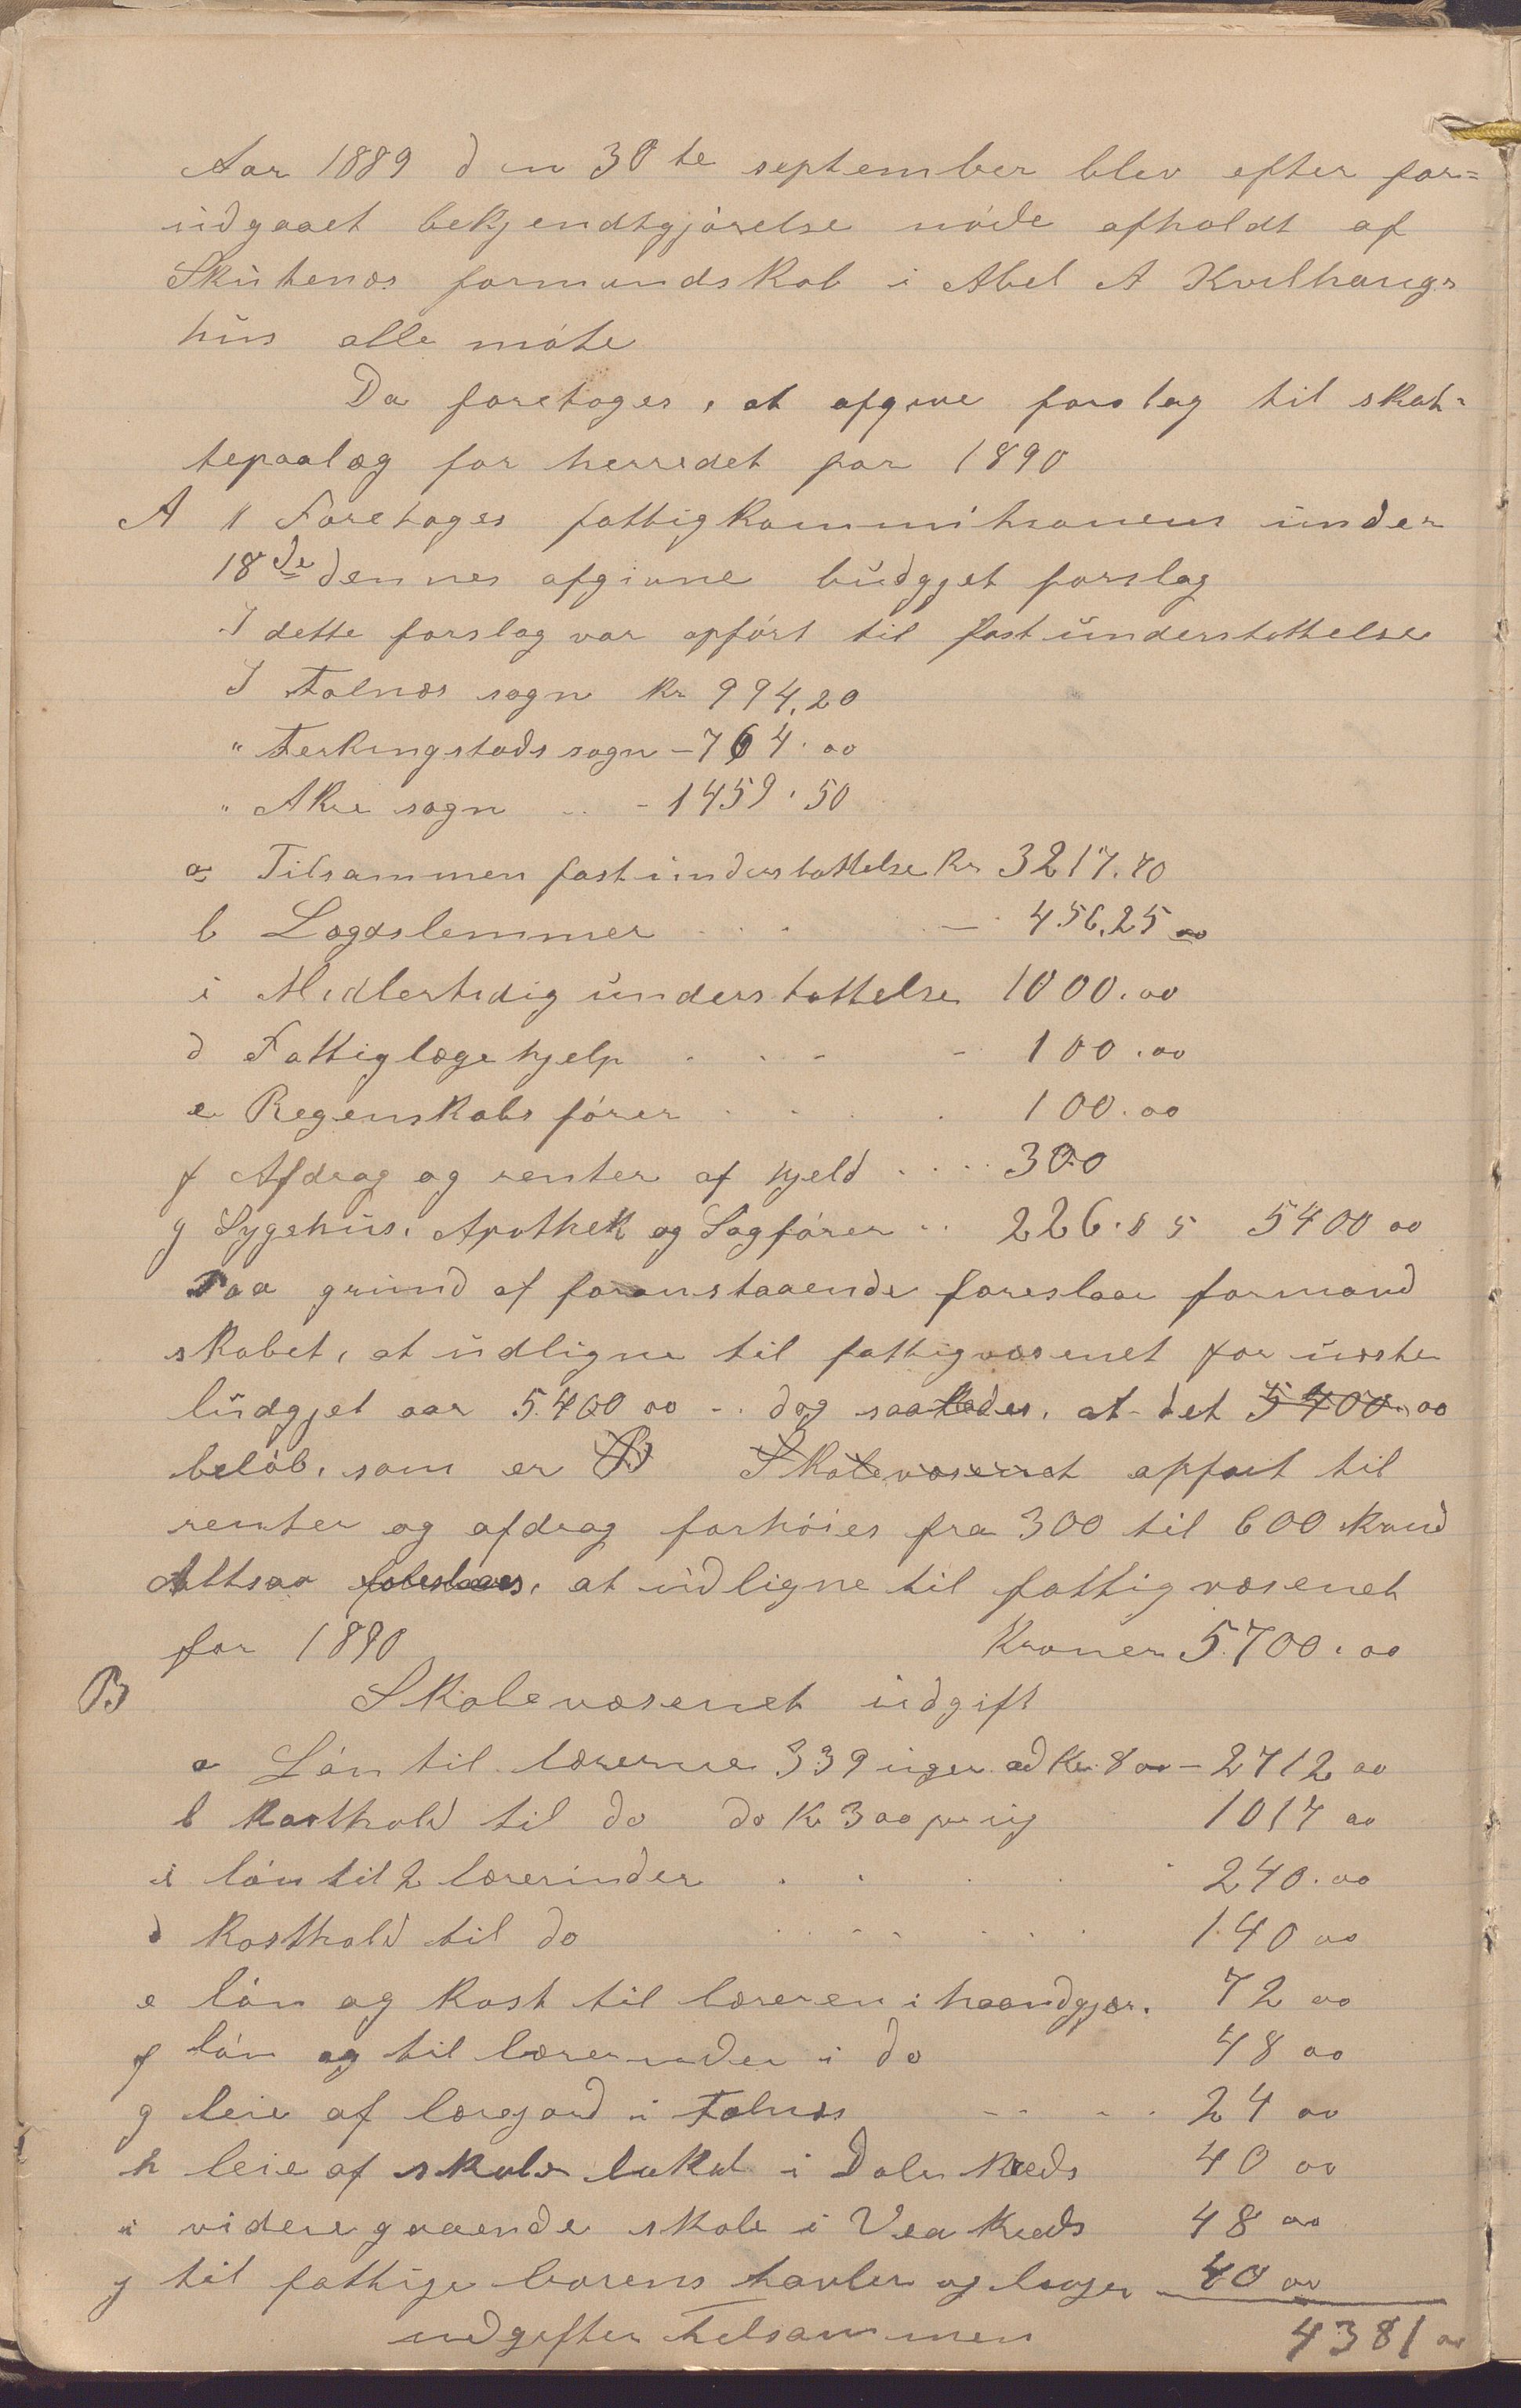 Aar 1889 den 30te september blev efter for=
udgaaet bekjendtgjørelse møde afholdt af
Skutenæs formandskab i Abel A Kvilhaugs
hus alle møte
Da foretoges, at afgive forslag til skat=
tepaalæg for herredet for 1890
A 1 Foretoges fattigkommitionens under
18de dennes afgivne budgjet forslag
I dette forslag var opført til fast understøttelse
I Falnæs sogn Kr 994,20
" Ferkingstads sogn - 764.00
" Akre sogn .. - 1459.50
a Tilsammen fast understøttelse Kr 3217.70
b Lægdslemmer . . . — 456,25
c Midlertidig understøttelse 1000.00
d Fattiglæge hjelp . . - - 100.00
e Regenskabsfører . . . . 100.00
f Afdrag og renter af gjeld .... 300
g Sygehus. Apothek og Sagfører .. 226.85 5400 00
Paa grund af foranstaaende foreslaar formand
skabet, at udligne til fattigvæsenet for næste
budgjet aar 5400 00 -. dog saaledes, at det 5400.00
beløb, som er B Skolevæsenet opført til
renter og afdrag forhøies fra 300 til 600 Kroner
Altsaa foreslaaes, at udligne til fattigvæsenet
for 1890 Kroner 5700.00
B Skolevæsenet udgift
a Løn til lærerne 339 uger ad Kr. 8 00 - 2712 00
b Kosthold til do do Kr 3 00 pr ug 1017 00
c løn til 2 lærerinder . . . . . 240.00
d Kosthold til do . . . . . . 140 00
e løn og kost til læreren i haandgjer. 72 00
f løn og til lærerinder i do 48 00
g leie af læregard i Falnæs - - - . 24 00
h leie af skole lokal i Dale Kreds 40 00
i videregaaende skole i Vea Kreds 48 00
j til fattige børens tavler og bøger 40 00
udgifter Tilsammen 4381 00